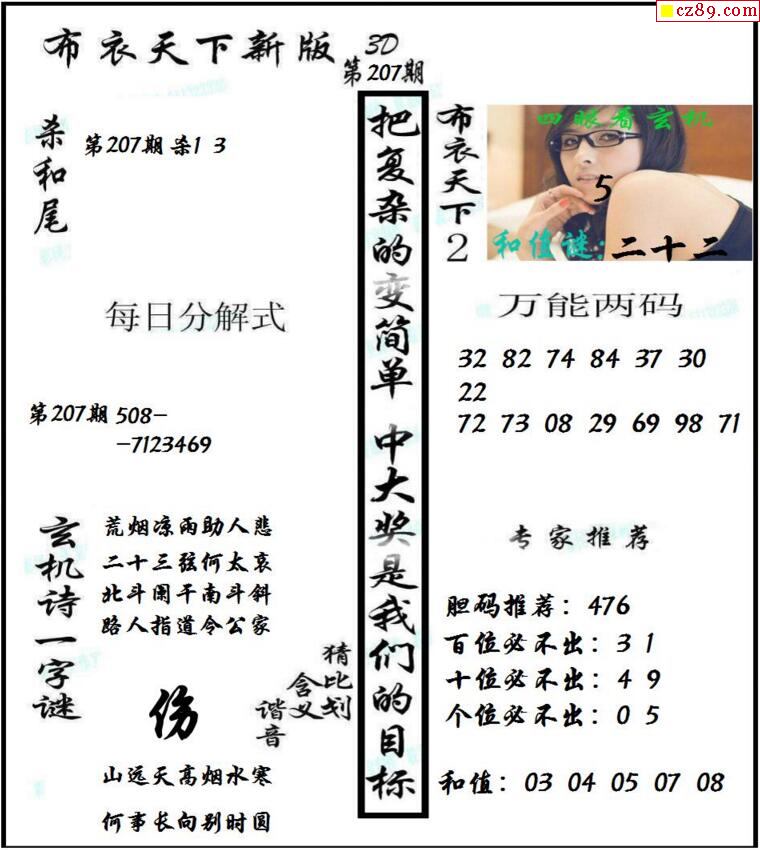 cz89.com
布衣天下新版 3D
第207期
杀和尾
第207期 杀1 3
每日分解式
第207期 508-
-7123469
玄机诗一字谜
荒烟凉雨助人悲
二十三弦何太哀
北斗阑干南斗斜
路人指道令公家
伤
猜比划
含义
谐音
山远天高烟水寒
何事长向别时圆
把复杂的变简单 中大奖是我们的目标
布衣天下2
四眼看玄机
5
和值谜:二十二
万能两码
32 82 74 84 37 30
22
72 73 08 29 69 98 71
专家推荐
胆码推荐：476
百位必不出：3 1
十位必不出：4 9
个位必不出：0 5
和值：03 04 05 07 08